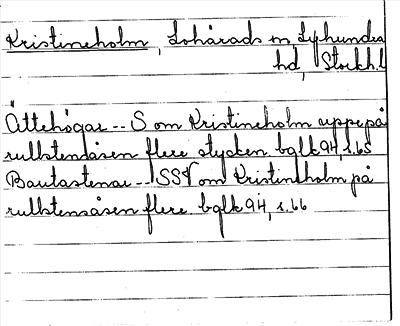 Kristineholm, Lohärads sn Lyhundra
hd, Stockh.l
Ättehögar -- S om Kristineholm uppe på
rullstensåsen flere stycken bglk 94, s.65
Bautastenar -- SSV om Kristineholm på
rullstensåsen flere bglk 94, s.66